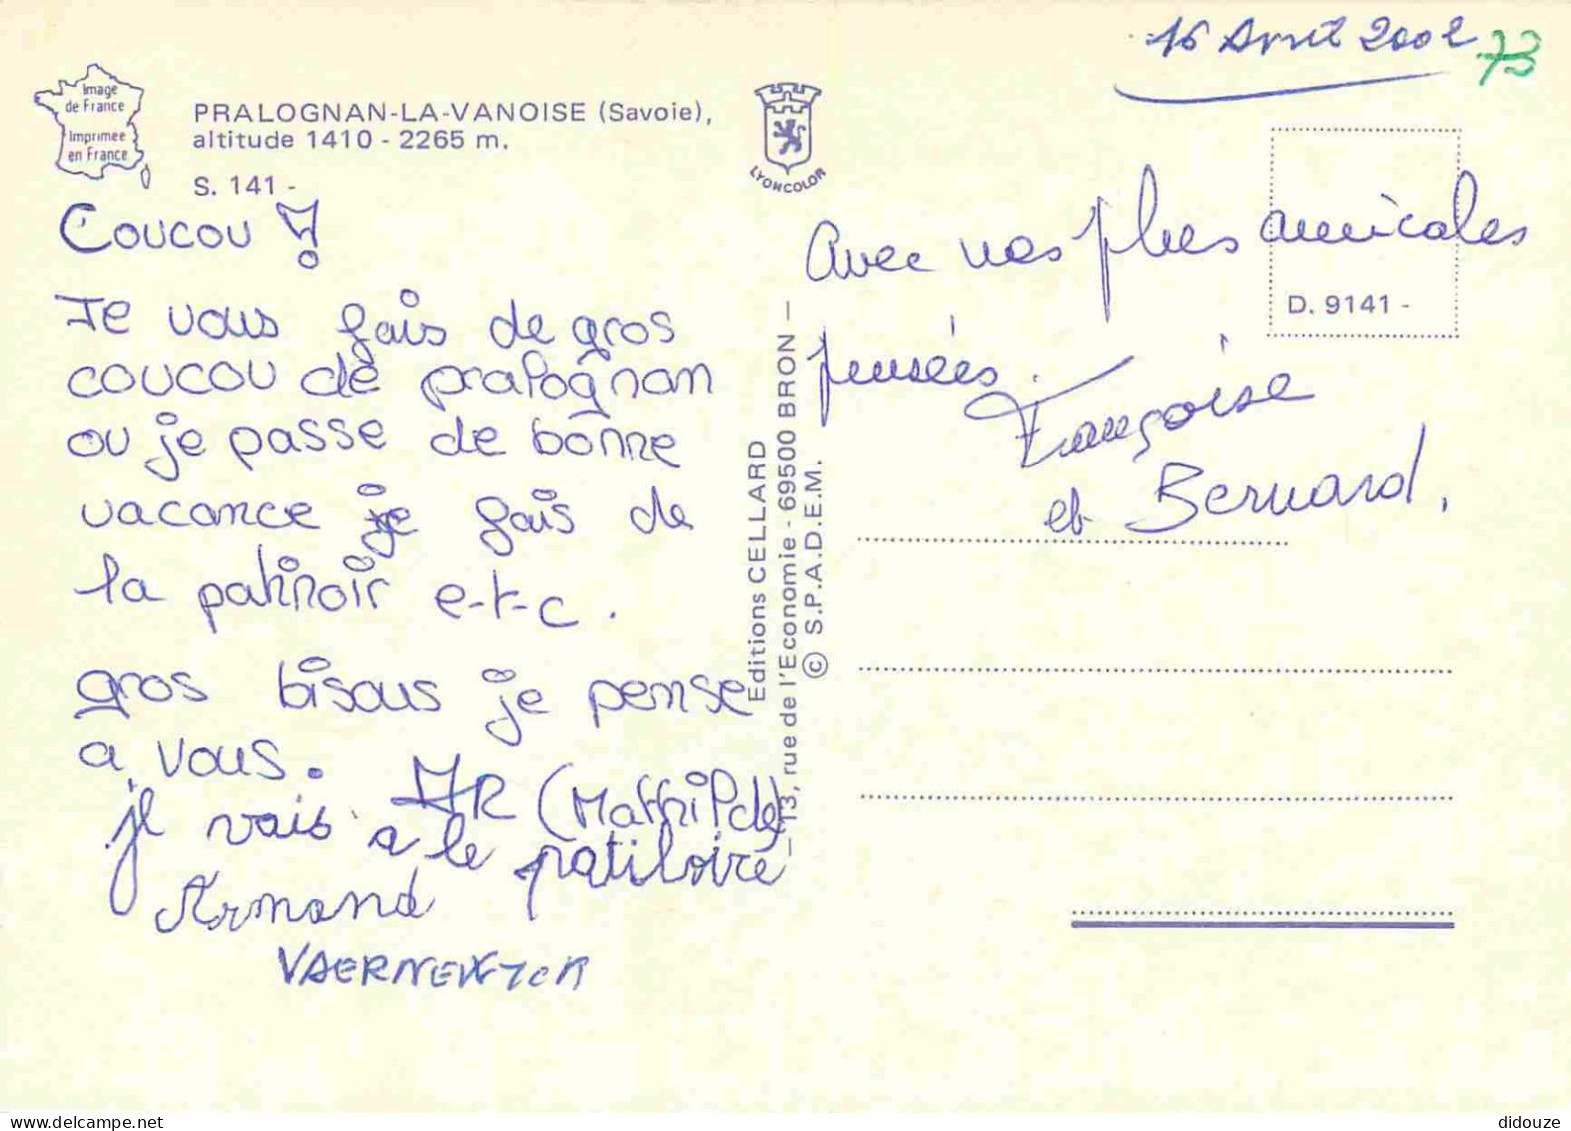 16 Avril 2002
73
Image
de France
Imprimee
en France
PRALOGNAN-LA-VANOISE (Savoie),
altitude 1410 - 2265 m.
S. 141 -
LYONCOLOR
D. 9141 -
Coucou !
Je vous fais de gros
coucou de pralognan
ou je passe de bonne
vacance je fais de
la patinoir e-t-c .
gros bisous je pense
a vous.
(Mathilde)
je vais a le patiloire
Armand
VAERNEWYCK
Editions CELLARD
13, rue de l'Economie - 69500 BRON —
© S.P.A.D.E.M.
Avec nos plus amicales
pensées.
Françoise
et Bernard.
didouze